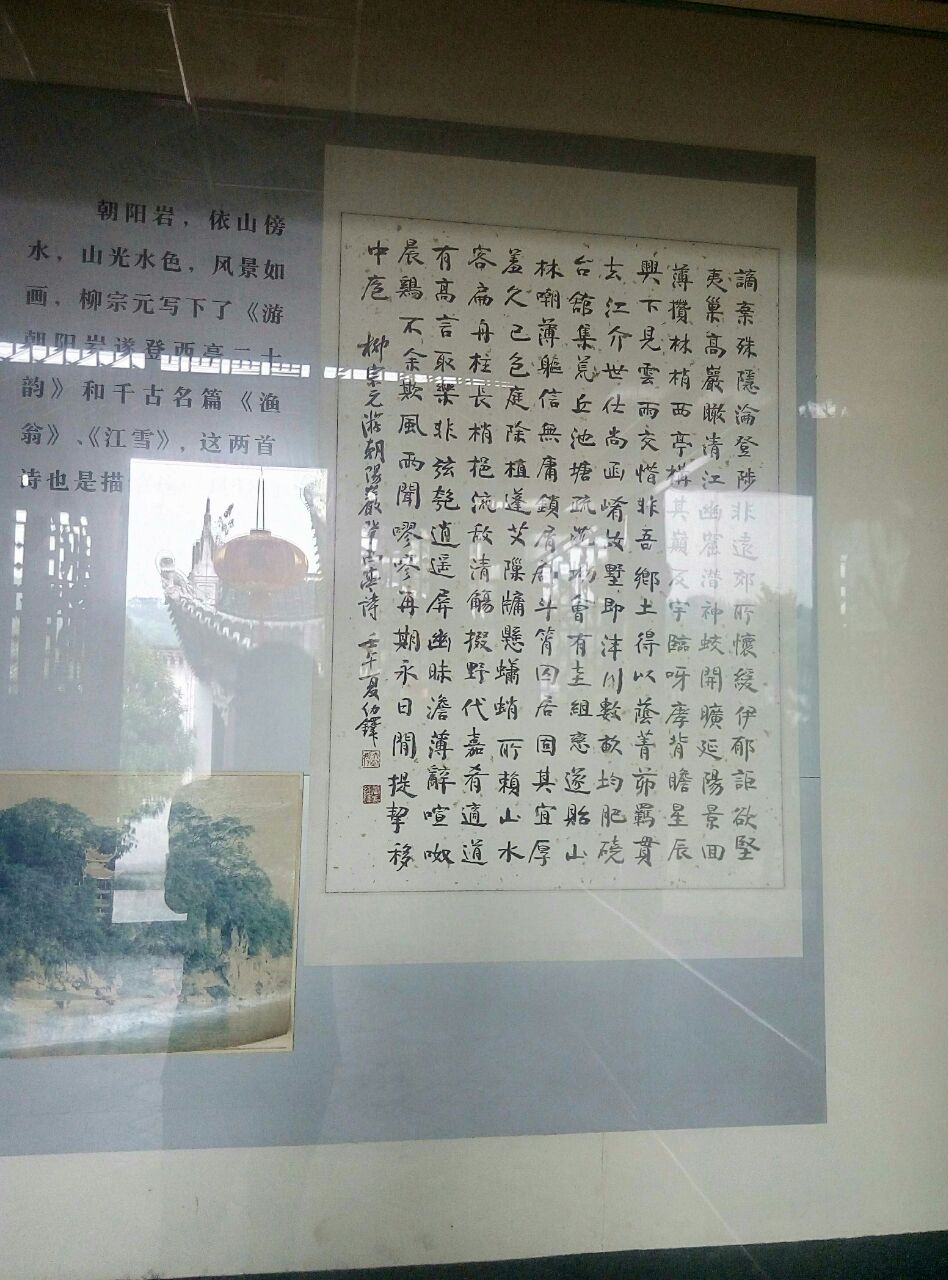 朝阳岩，依山傍
水，山光水色，风景如
画，柳宗元写下了《游
朝阳岩遂登西亭二十
韵》和千古名篇《渔
翁》、《江雪》，这两首
诗也是描
謫棄殊隱淪登陟非遠郊所懷緩伊郁詎欲堅
夷巢高巖瞰清江幽窟潛神蛟開曠延陽景回
薄攢林梢西亭構其巔反宇臨呀庨背瞻星辰
興下見雲雨交惜非吾鄉土得以蔭菁茆羈貫
去江介世仕尚函崤故墅即沣川數畝均肥磽
台舘集荒丘池塘疏沈坳會有圭組戀遂貽山
林嘲薄軀信無庸鎖屑劇斗筲囚居固其宜厚
羞久已包庭除植蓬艾隟牖懸蠨蛸所賴山水
客扁舟枉長梢挹流敵清觴掇野代嘉肴適道
有高言取樂非弦匏逍遥屏幽昧澹薄辭喧呶
晨鷄不余欺風雨聞嘐嘐再期永日閒提挈移
中庖 柳宗元游朝陽巖登西亭詩 壬午夏